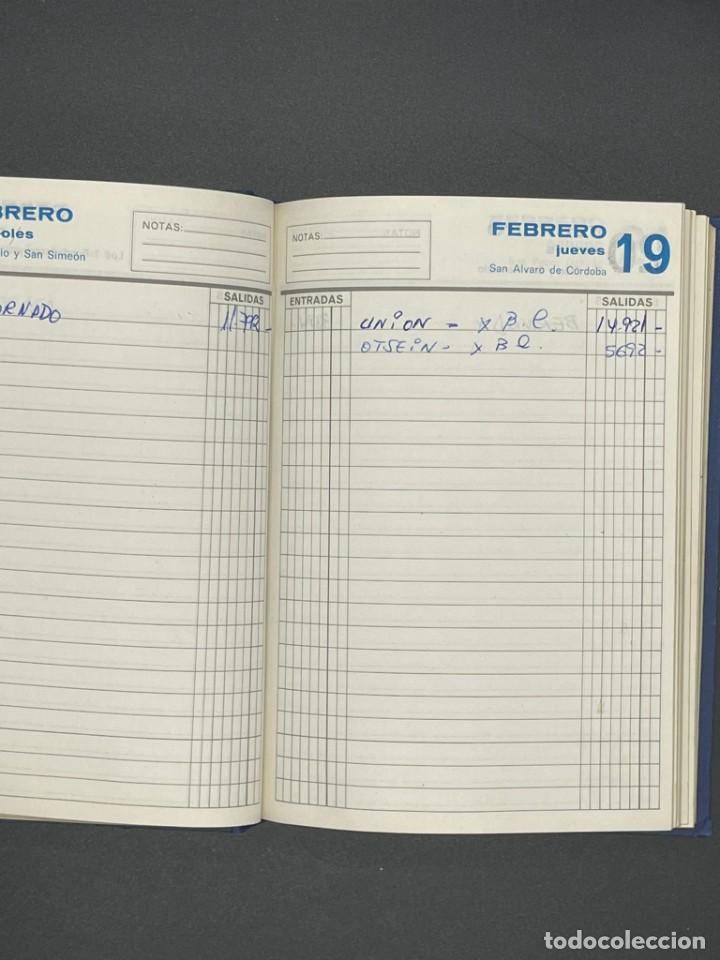 BRERO
oles
io y San Simeón
NOTAS:
SALIDAS
ORNADO 11792-
NOTAS:
FEBRERO
jueves
19
San Alvaro de Córdoba
ENTRADAS SALIDAS
UNION - X B l. 14.921-
OTSEIN - X B l. 5692-
todocoleccion